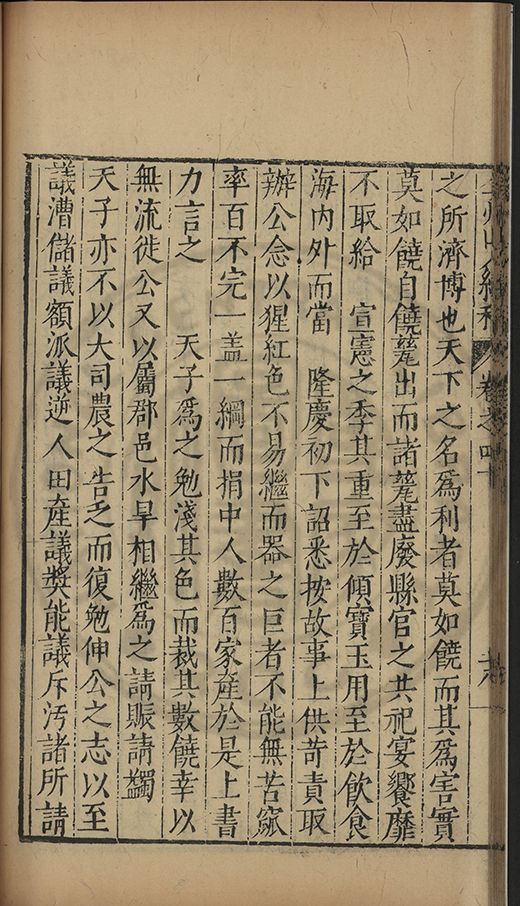 之所濟博也天下之名爲利者莫如饒而其爲害實
莫如饒自饒窰出而諸窰盡廢縣官之共祀宴饗靡
不取給　宣憲之季其重至於傾寶玉用至於飲食
海内外而當　隆慶初下詔悉按故事上供苛責取
辦公念以猩紅色不易繼而器之巨者不能無苦窳
率百不完一盖一綱而捐中人數百家産於是上書
力言之　天子爲之勉淺其色而裁其數饒幸以
無流徙公又以屬郡邑水旱相繼爲之請賑請蠲
天子亦不以大司農之告乏而復勉伸公之志以至
議漕儲議額派議逆人田産議奬能議斥汚諸所請